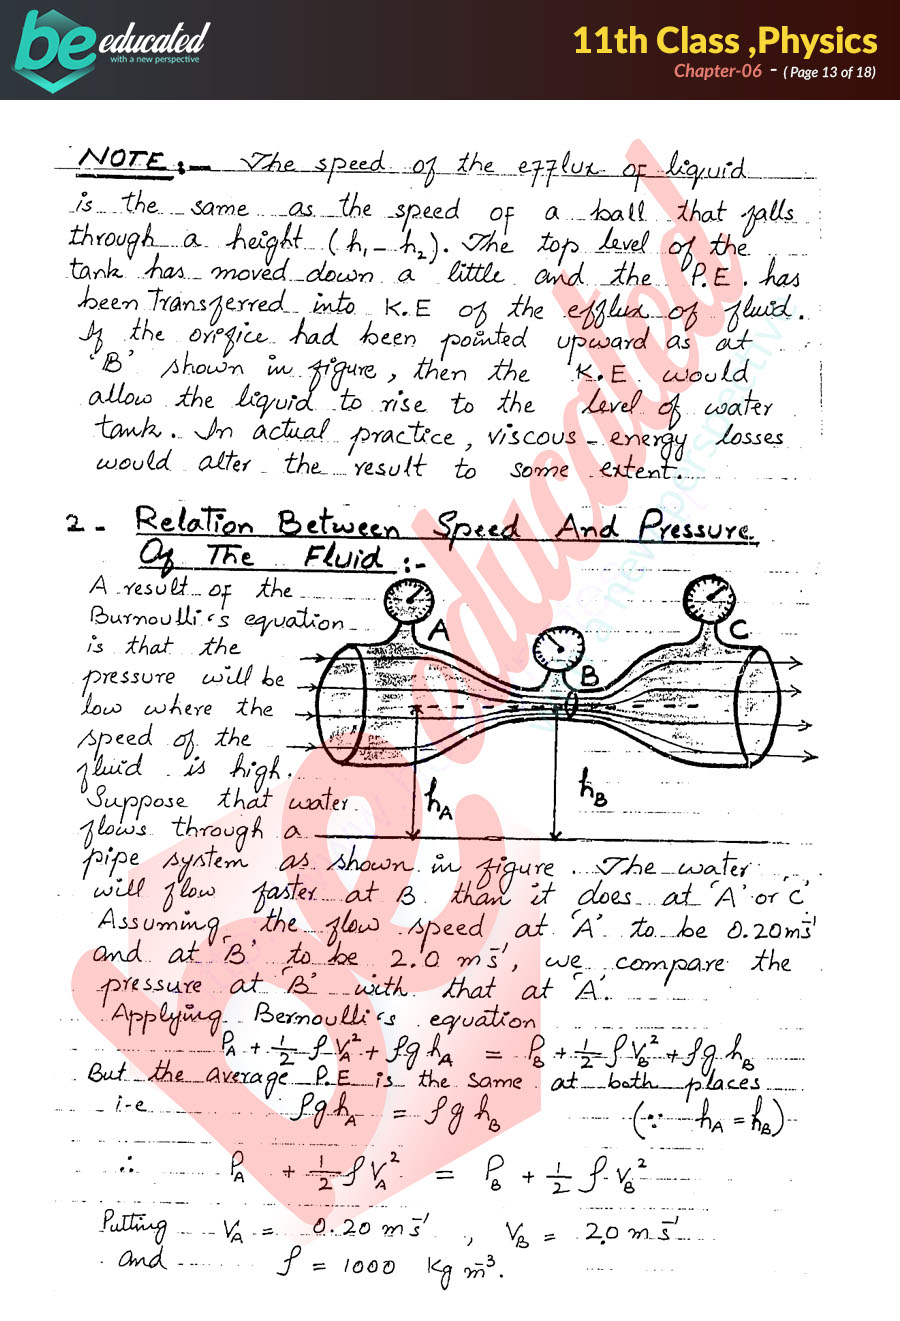 be educated
with a new perspective
11th Class ,Physics
Chapter-06 - ( Page 13 of 18)
NOTE:- The speed of the efflux of liquid
is the same as the speed of a ball that falls
through a height (h₁ - h₂). The top level of the
tank has moved down a little and the P.E. has
been Transferred into K.E of the efflux of fluid.
If the orifice had been pointed upward as at
'B' shown in figure, then the K.E would
allow the liquid to rise to the level of water
tank. In actual practice, viscous - energy losses
would alter the result to some extent.
2 - Relation Between Speed And Pressure
Of The Fluid :-
A result of the
Burnoulli's equation
is that the
pressure will be
low where the
speed of the
fluid is high.
Suppose that water
flows through a
A
B
C
hA
hB
pipe system as shown in figure. The water
will flow faster at B than it does at 'A' or 'C'
Assuming the flow speed at 'A' to be 0.20 ms⁻¹
and at 'B' to be 2.0 ms⁻¹, we compare the
pressure at 'B' with that at 'A'.
Applying Bernoulli's equation
P_A + 1/2 ρ V_A² + ρg h_A = P_B + 1/2 ρ V_B² + ρg h_B
But the average P.E is the same at both places
i-e ρg h_A = ρg h_B (∵ h_A = h_B)
∴ P_A + 1/2 ρ V_A² = P_B + 1/2 ρ V_B²
Putting V_A = 0.20 ms⁻¹ , V_B = 2.0 ms⁻¹
and ρ = 1000 Kg m⁻³.